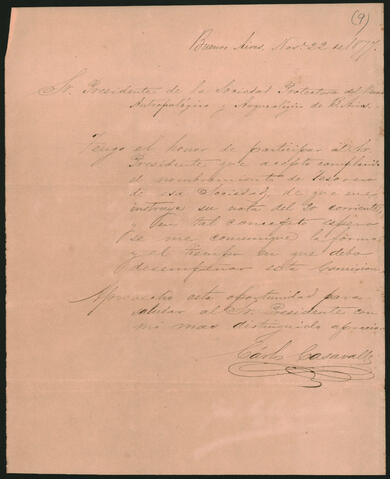 (9)
Buenos Aires, Nov. 22 de 1877.
Sr. Presidente de la Sociedad Protectora del Museo
Antropológico y Arqueológico de
Tengo el honor de participar al Sr.
Presidente que acepto complacido
el nombramiento de tesorero
de esa Sociedad, de que me
instruye su nota del 20 corriente,
y en tal concepto espero
se me comunique la forma
y el tiempo en que debo
desempeñar esta Comision
Aprovecho esta oportunidad para
saludar al Sr. Presidente con
mi mas distinguido aprecio
Cárlos Casavalle